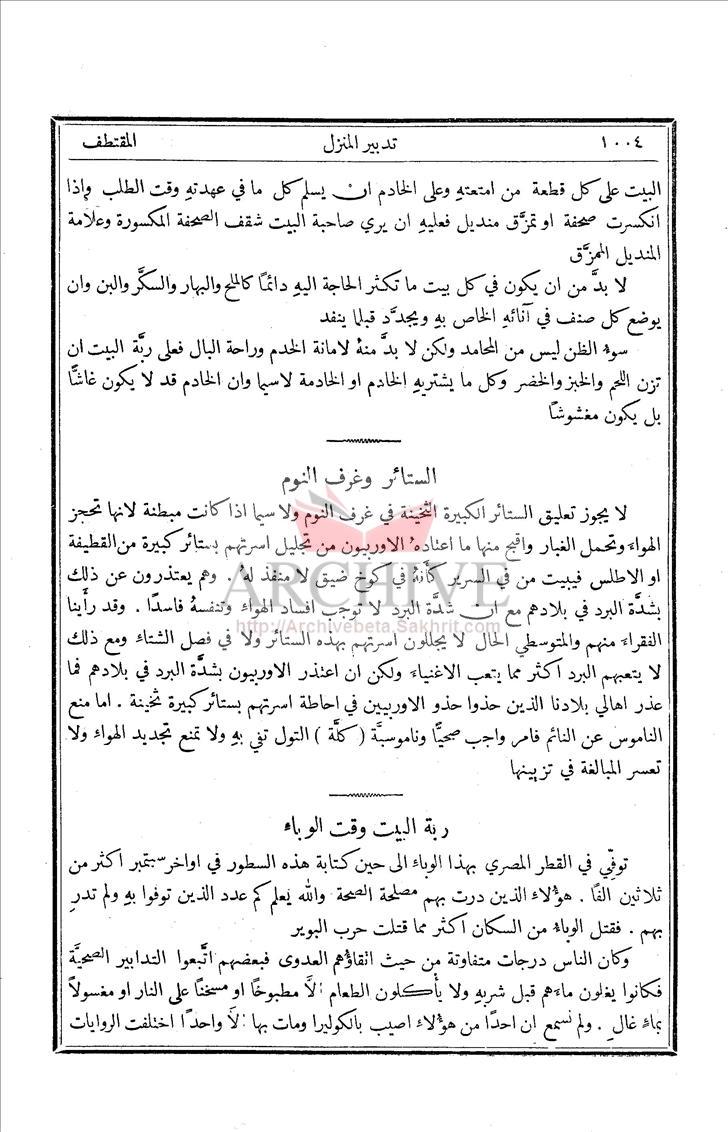 ١٠٠٤ تدبير المنزل المقتطف
البيت على كل قطعة من امتعتهِ وعلى الخادم ان يسلم كل ما في عهدتهِ وقت الطلب واذا
انكسرت صحفة او تمزَّق منديل فعليهِ ان يري صاحبة البيت شقف الصحفة المكسورة وعلامة
المنديل الممزَّق
لا بدَّ من ان يكون في كل بيت ما تكثر الحاجة اليهِ دائمًا كالملح والبهار والسكَّر والبن وان
يوضع كل صنف في آنائهِ الخاص بهِ ويجدَّد قبلما ينفد
سوء الظن ليس من المحامد ولكن لا بدَّ منهُ لامانة الخدم وراحة البال فعلى ربَّة البيت ان
تزن اللحم والخبز والخضر وكل ما يشتريهِ الخادم او الخادمة لاسيما وان الخادم قد لا يكون غاشًّا
بل يكون مغشوشًا
الستائر وغرف النوم
لا يجوز تعليق الستائر الكبيرة الثخينة في غرف النوم ولا سيما اذا كانت مبطنة لانها تحجز
الهواء وتحمل الغبار واقبح منها ما اعتادهُ الاوربيون من تجليل اسرتهم بستائر كبيرة من القطيفة
او الاطلس فيبيت من في السرير كأَنهُ في كوخ ضيق لا منفذ لهُ . وهم يعتذرون عن ذلك
بشدَّة البرد في بلادهم مع ان شدَّة البرد لا توجب افساد الهواء وتنفسهُ فاسدًا . وقد رأَينا
الفقراء منهم والمتوسطي الحال لا يجللون اسرتهم بهذه الستائر ولا في فصل الشتاء ومع ذلك
لا يتعبهم البرد اكثر مما يتعب الاغنياء ولكن ان اعتذر الاوربيون بشدَّة البرد في بلادهم فما
عذر اهالي بلادنا الذين حذوا حذو الاوربيين في احاطة اسرتهم بستائر كبيرة ثخينة . اما منع
الناموس عن النائم فامر واجب صحيًّا وناموسيَّة ( كلَّة ) التول تفي بهِ ولا تمنع تجديد الهواء ولا
تعسر المبالغة في تزيينها
ربة البيت وقت الوباء
توفّي في القطر المصري بهذا الوباء الى حين كتابة هذه السطور في اواخر سبتمبر اكثر من
ثلاثين الفًا . هؤلاء الذين درت بهم مصلحة الصحة والله يعلم كم عدد الذين توفوا بهِ ولم تدرِ
بهم . فقتل الوباء من السكان اكثر مما قتلت حرب البوير
وكان الناس درجات متفاوتة من حيث اتقاؤهم العدوى فبعضهم اتَّبعوا التدابير الصحيَّة
فكانوا يغلون ماءَهم قبل شربهِ ولا يأكلون الطعام الَّا مطبوخًا او مسخنًا على النار او مغسولاً
بماء غالٍ . ولم نسمع ان احدًا من هؤلاء اصيب بالكوليرا ومات بها الَّا واحدًا اختلفت الروايات
ARCHIVE
http://Archivebeta.Sakhrit.com